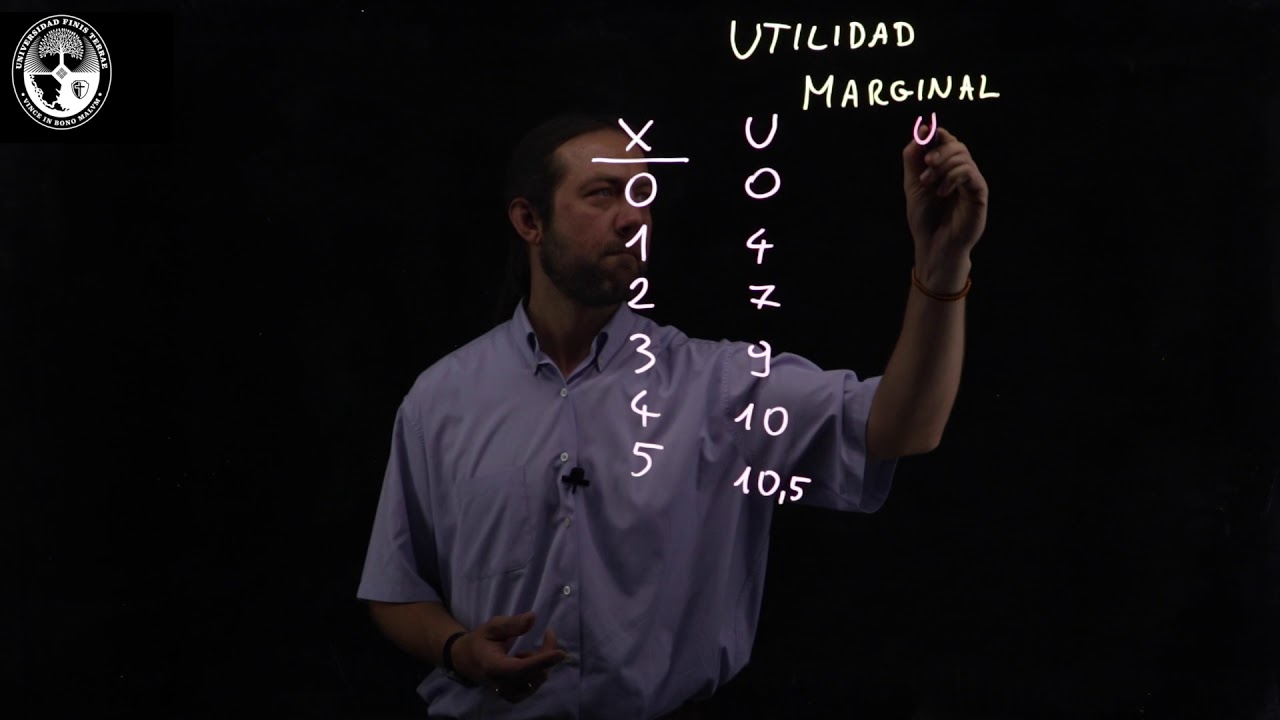 UNIVERSIDAD FINIS TERRAE
VINCE IN BONO MALVM
UTILIDAD
MARGINAL
X U U
0 0
1 4
2 7
3 9
4 10
5 10,5